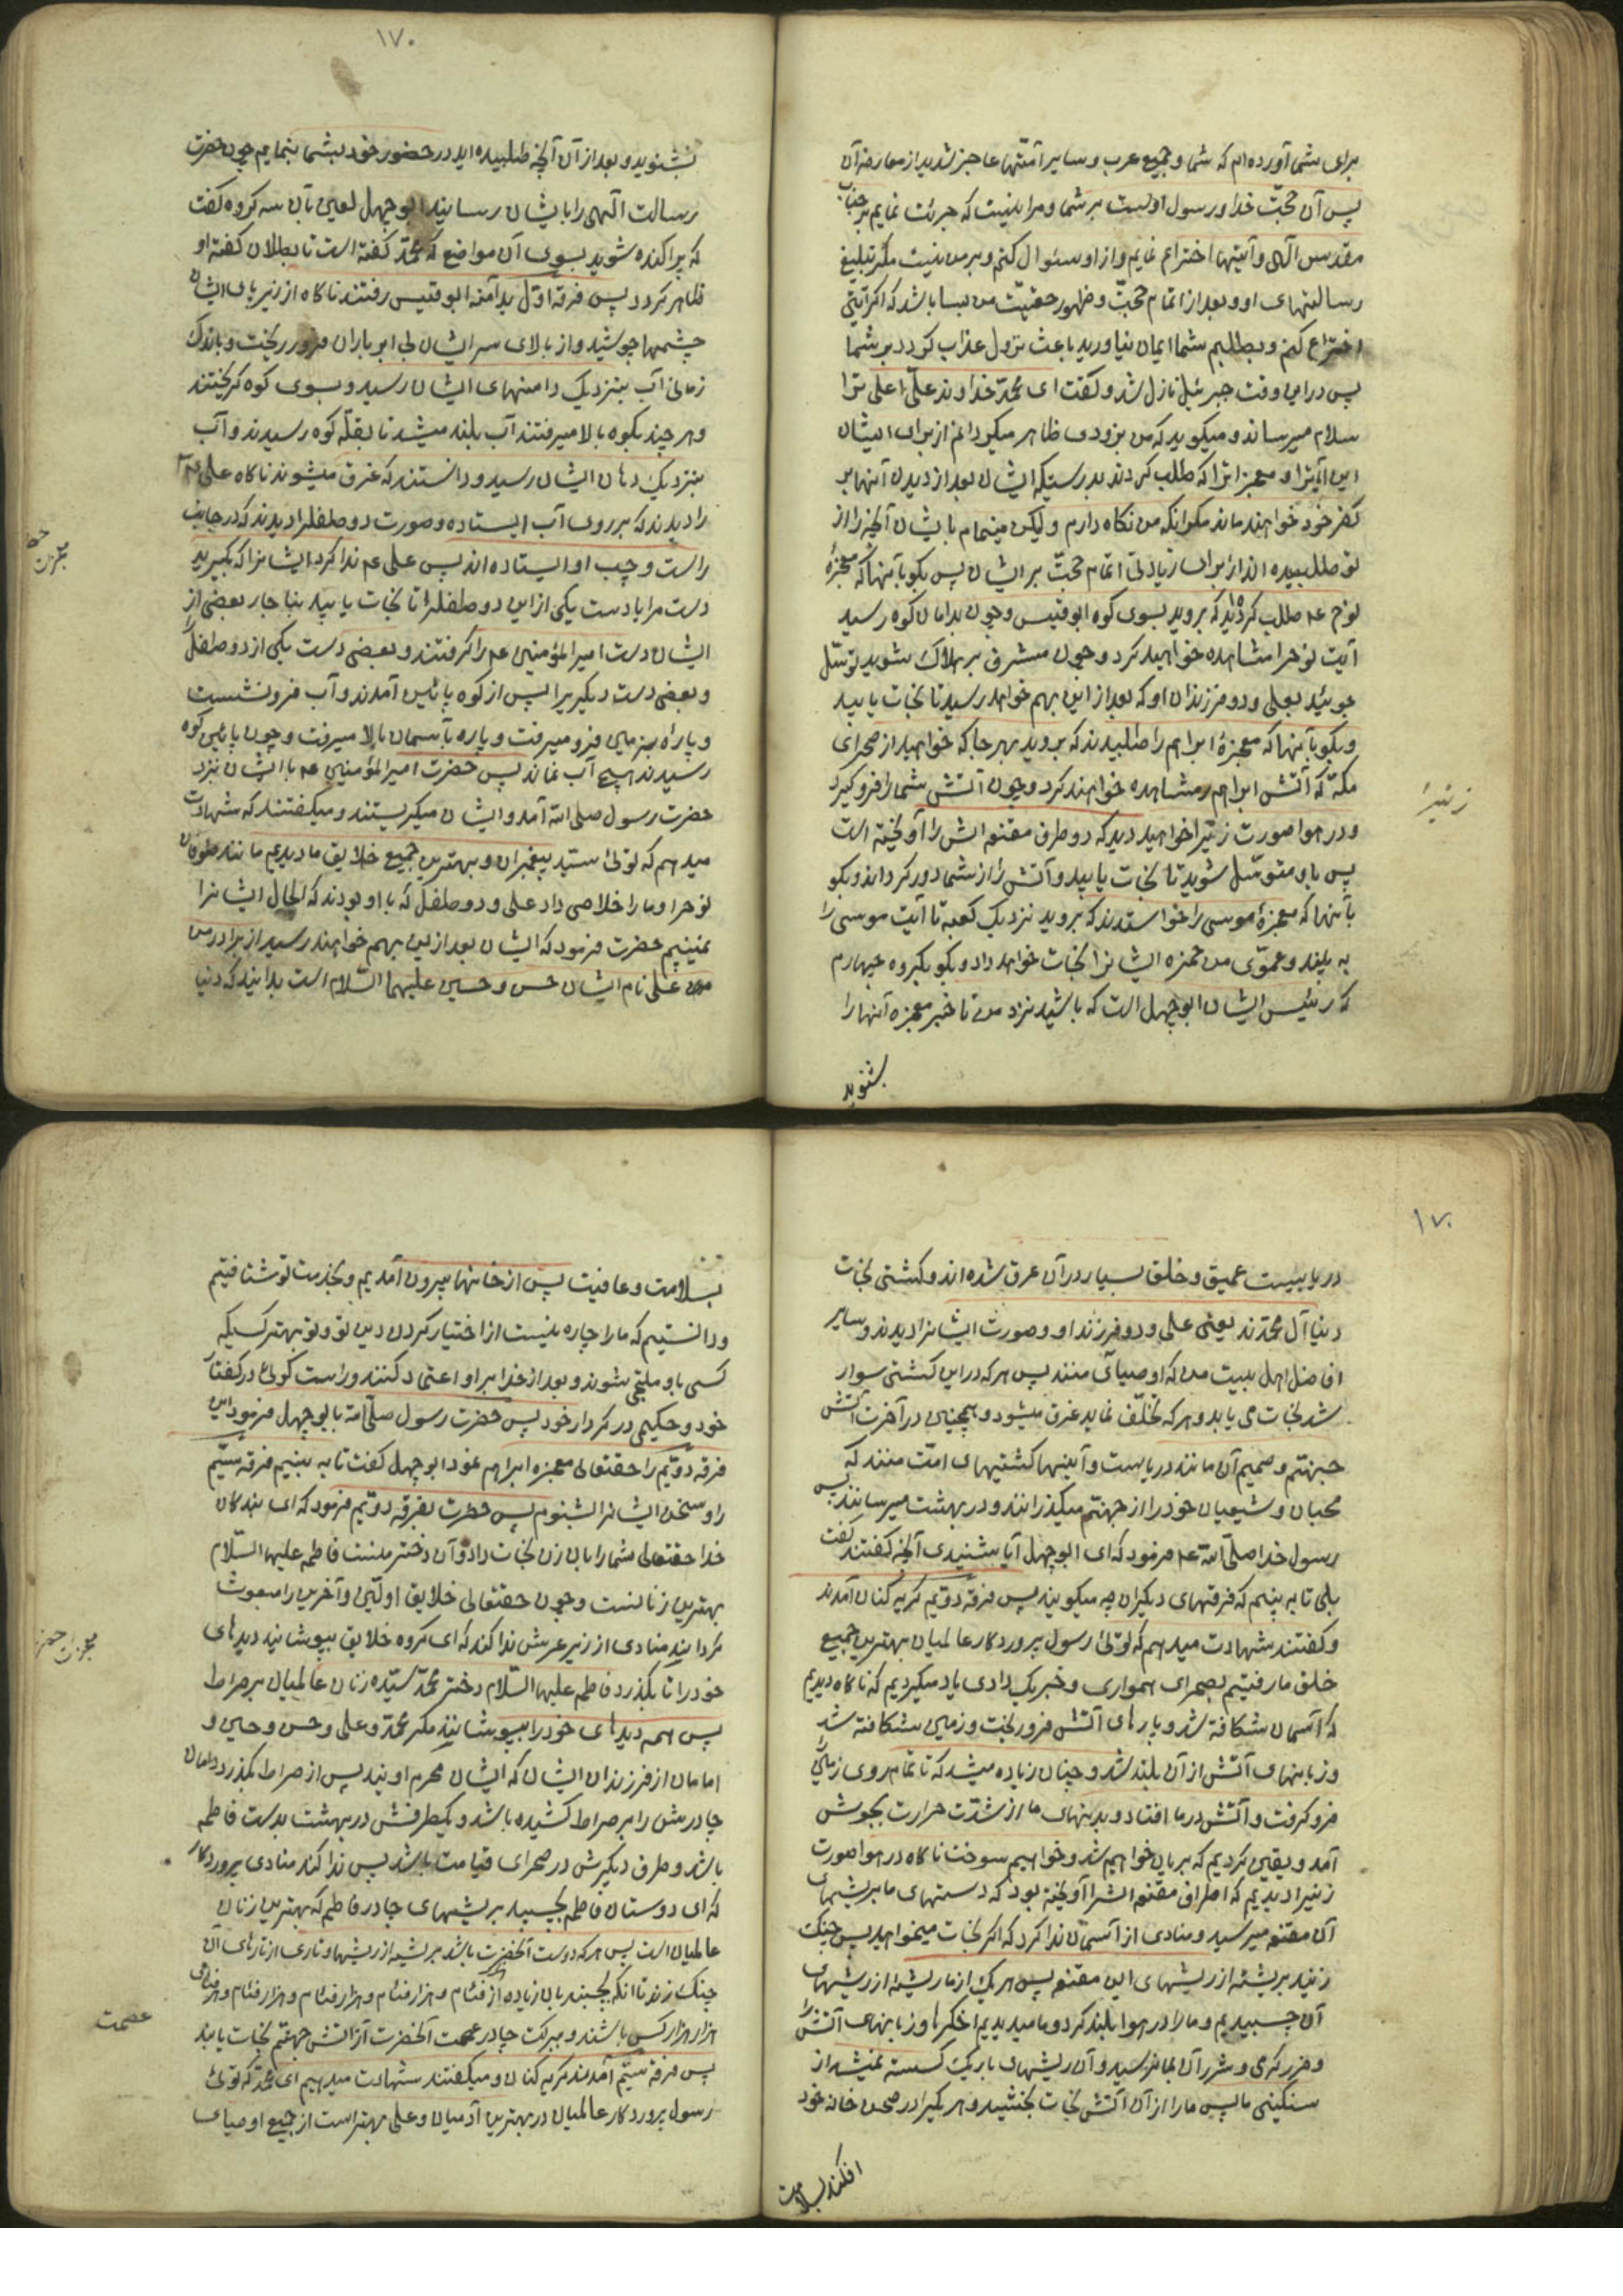 برای شما آورده‌ام که شما و جمیع عرب و سایر امّتها عاجز شدید از معارضهٔ آن
پس آن حجّت خدا و رسول اوست بر شما و مرا نیست که جرئت نمایم بر جناب
مقدس الٓهی و آیتها اختراع نمایم و از او سئوال کنم و بر من نیست مکر تبلیغ
رسالتهای او و بعد از اتمام حجّت و ظهور حقیّت من بسا باشد که اکر آیتی
اختراع کنم و بطلبم شما ایمان نیاورید باعث نزول عذاب کردد بر شما
پس در این وقت جبرئیل نازل شد و کفت ای محمّد خداوند علّی اعلی ترا
سلام میرساند و میکوید که من بزودی ظاهر میکردانم از برای ایشان
این آیتها و معجزاترا که طلب کردند بدرستیکه ایشان بعد از دیدن آنها بر
کفر خود خواهند ماند مکر آنکه من نکاه دارم و لیکن مینمایم بایشان آنچه را از
تو طلبیده‌اند از برای زیادتی اتمام حجّت بر ایشان پس بکو بآنها که معجزهٔ
نوح عم طلب کردید که بروید بسوی کوه ابوقبیس و چون بدامان کوه رسید
آیت نوحرا مشاهده خواهید کرد و چون مشرف بر هلاک شوید توسّل
جوئید بعلی و دو فرزندان او که بعد از این بهم خواهد رسید تا نجات یابید
و بکو بآنها که معجزهٔ ابراهیم را طلبیدند که بروید بهر جا که خواهید از صحرای
مکّه که آتش ابراهیم مشاهده خواهند کرد و چون آتش شما را فرو کیرد
و در هوا صورت زنیرا خواهید دید که دو طرف مقنعه‌اش را آویخته است
پس باو متوسّل شوید تا نجات یابید و آتش را از شما دور کرداند و بکو
بآنها که معجزهٔ موسی را خواستند که بروید نزدیک کعبه تا آیت موسی را
به بینند و عموی من حمزه ایشانرا نجات خواهد داد و بکو بکروه چهارم
که رئیس ایشان ابوجهل است که باشید نزد من تا خبر معجزه آنها را
بشنوید
زنیرا
۱۷۰
بشنوید و بعد از آن آنچه طلبیده‌اید در حضور خود بشما بنمایم چون حضرت
رسالت الٓهی را بایشان رسانید ابوجهل لعین بآن سه کروه کفت
که پراکنده شوید بسوی آن مواضع که محمّد کفته است تا بطلان کفته او
ظاهر کردد پس فرقه اوّل بدامنه ابوقبیس رفتند ناکاه از زیر پای ایشان
چشمها جوشید و از بالای سر ایشان بی ابر باران فرو ریخت و باندک
زمانی آب بنزدیک دامنهای ایشان رسید و بسوی کوه کریختند
و هر چند بکوه بالا میرفتند آب بلند میشد تا بقلّه کوه رسیدند و آب
بنزدیک دهان ایشان رسید و دانستند که غرق میشوند ناکاه علی عم
را دیدند که بر روی آب ایستاده و صورت دو طفلرا دیدند که در جانب
راست و چپ او ایستاده‌اند پس علی عم ندا کرد ایشانرا که بکیرید
دست مرا یا دست یکی از این دو طفلرا تا نجات یابید بناچار بعضی از
ایشان دست امیرالمؤمنین عم را کرفتند و بعضی دست یکی از دو طفلرا
و بعضی دست دیکریرا پس از کوه پائین آمدند و آب فرو نشست
و پارهٔ بزمین فرو میرفت و پاره بآسمان بالا میرفت و چون پائین کوه
رسیدند هیچ آب نماند پس حضرت امیرالمؤمنین عم با ایشان نزد
حضرت رسول صلی الله آمد و ایشان میکریستند و میکفتند که شهادت
میدهم که توئی سید پیغمبران و بهترین جمیع خلایق ما دیدیم مانند طوفان
نوحرا و ما را خلاصی داد علی و دو طفل که با او بودند که الحال ایشانرا
نمی‌بینیم حضرت فرمود که ایشان بعد ازین بهم خواهند رسید از برادر من
علی نام ایشان حسن و حسین علیهما السّلام است بدانید که دنیا
معجزات
۱۷۰
دریاییست عمیق و خلق بسیار در آن غرق شده‌اند و کشتی نجات
دنیا آل محمّدند یعنی علی و دو فرزند او و صورت ایشانرا دیدند و سایر
افاضل اهل بیت من که اوصیای منند پس هر که در این کشتی سوار
شد نجات می یابد و هر که تخلّف نماید غرق میشود و همچنین در آخرت آتش
جهنّم و حمیم آن مانند دریاست و آینها کشتیهای امّت منند که
محبان و شیعیان خود را از جهنّم میکذرانند و در بهشت میرسانند پس
رسول خدا صلّی الله عم فرمود که ای ابوجهل آیا شنیدی آنچه کفتند کفت
بلی تا به بینم که فرقتهای دیکران چه میکویند پس فرقه دویّم کریه کنان آمدند
و کفتند شهادت میدهم که توئی رسول پروردکار عالمیان و بهترین جمیع
خلق ما رفتیم بصحرای همواری و خبریکه دادی یاد میکردیم که ناکاه دیدیم
که آسمان شکافته شد و پارهای آتش فرو ریخت و زمین شکافته شد
و زبانهای آتش از آن بلند شد و چنان زیاده میشد که تا تمام روی زمین
فرو کرفت و آتش در ما افتاد و بدنهای ما از شدّت حرارت بجوش
آمد و یقین کردیم که بریان خواهیم شد و خواهیم سوخت ناکاه در هوا صورت
زنیرا دیدیم که اطراف مقنعه‌اشرا آویخته بود که دستهای ما بریشهای
آن مقنعه میرسید و منادی از آسمان ندا کرد که اکر نجات میخواهید پس چنک
زنید بریشه از ریشهای این مقنعه پس هر یک از ما بریشه از ریشهای
آن چسبیدیم و ما را در هوا بلند کرد و ما میدیدیم اخکرها و زبانهای آتش را
و ضرر کرمی و شرر آن بما نمیرسید و آن ریشهای باریک کسسته نمیشد از
سنکینی ما پس ما را از آن آتش نجات بخشید و هر یکیرا در صحن خانه خود
افکند بسلامت
بسلامت و عافیت پس از خانها بیرون آمدیم و بخدمت تو شتافتیم
و دانستیم که ما را چاره نیست از اختیار کردن دین تو و تو بهتر کسیکه
کسی باو ملتجی شوند و بعد از خدا بر او اعتماد کنند و راست کوئی در کفتار
خود و حکیمی در کردار خود پس حضرت رسول صلّی الله بابوجهل فرمود این
فرقه دویّم را حقتعالی معجزه ابراهیم نمود ابوجهل کفت تا به بینیم فرقه سیّم
را و سخن ایشانرا بشنوم پس حضرت بفرقه دویّم فرمود که ای بندکان
خدا حقتعالی شما را باین زن نجات داد و آن دختر منست فاطمه علیها السّلام
بهترین زنانست و چون حقتعالی خلایق اوّلین و آخرین را مبعوث
کرداند منادی از زیر عرش ندا کند که ای کروه خلایق بپوشانید دیدهای
خود را تا بکذرد فاطمه علیها السّلام دختر محمّد سیّده زنان عالمیان بر صراط
پس همه دیدهای خود را بپوشانند مکر محمّد و علی و حسن و حسین و
امامان از فرزندان ایشان که ایشان محرم اویند پس از صراط بکذرد و دامان
چادرش را بر صراط کشیده باشد و یکطرفش در بهشت بدست فاطمه
باشد و طرف دیکرش در صحرای قیامت باشد پس ندا کند منادی پروردکار
که ای دوستان فاطمه بچسبید بریشهای چادر فاطمه که بهترین زنان
عالمیان است پس هر که دوست آنحضرت باشد بریشه از ریشها و تاری از تارهای آن
چنک زند تا آنکه بچسبند بان زیاده از هزار فئام و هزار فئام و هزار فئام و هر فئامی
هزار هزار کس باشند و ببرکت چادر عصمت آنحضرت از آتش جهنّم نجات یابند
پس فرقه سیّم آمدند کریه کنان و میکفتند شهادت میدهیم ای محمّد که توئی
رسول پروردکار عالمیان و بهترین آدمیان و علی بهتر است از جمیع اوصیای
معجزات
عصمت